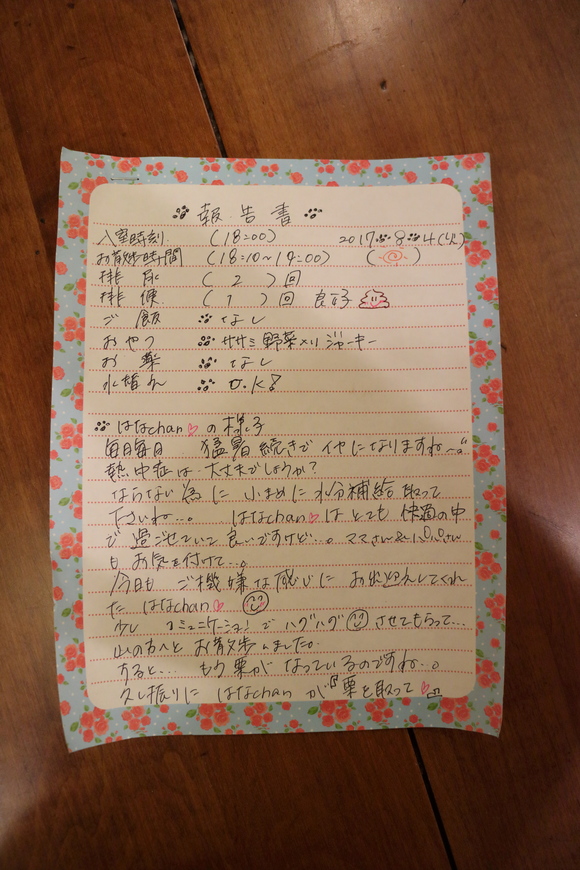 報告書
入室時刻 (18:00) 2017. 8. 4
お散歩時間 (18:10~19:00)
排尿 (2)回
排便 (1)回 良好
ご飯 なし
おやつ ササミ野菜入りジャーキー
お薬 なし
水替え O.K
はなchanの様子
毎日毎日 猛暑続きでイヤになりますね~
熱中症は大丈夫でしょうか?
ならない為に 小まめに水分補給取って
下さいね…。 はなchanはとても快適の中
で過ごせていて良いですけど…。ママさん&パパさん
もお気を付けて…。
今日も ご機嫌な感じに お出迎えしてくれ
た はなchan
少し コミュニケーションでハグハグさせてもらって…
山の方へと お散歩しました。
すると… もう栗がなっているのですね…。
久し振りに はなchanが『栗を取って』